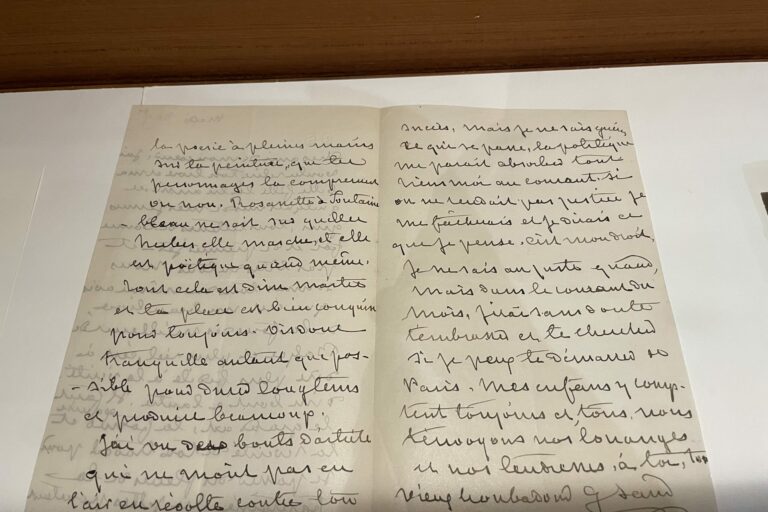 la poésie à pleines mains
sur la peinture, que tes
personnages la comprennent
ou non. Rosanette à Fontaine
-bleau ne sait sur quelles
herbes elle marche, et elle
est poétique quand même.
Tout cela est d'un maitre
et ta place est bien conquise
pour toujours. Vis donc
tranquille autant que pos-
-sible pour durer longtems
et produire beaucoup.
J'ai vu deux bouts d'article
qui ne m'ont pas eu
l'air en révolte contre ton
succès, mais je ne sais guère
ce qui se passe, la politique
me parait absorber tout
tiens moi au courant. Si
on ne rendait pas justice je
me fâcherais et je dirais ce
que je pense. C'est mon droit.
Je ne sais au juste quand,
mais dans le courant du
mois, j'irai sans doute
t'embrasser et te chercher
si je peux te démarrer de
Paris. Mes enfans y comp-
tent toujours et tous, nous
t'envoyons nos louanges
et nos tendresses, à toi, ton
vieux troubadour G Sand